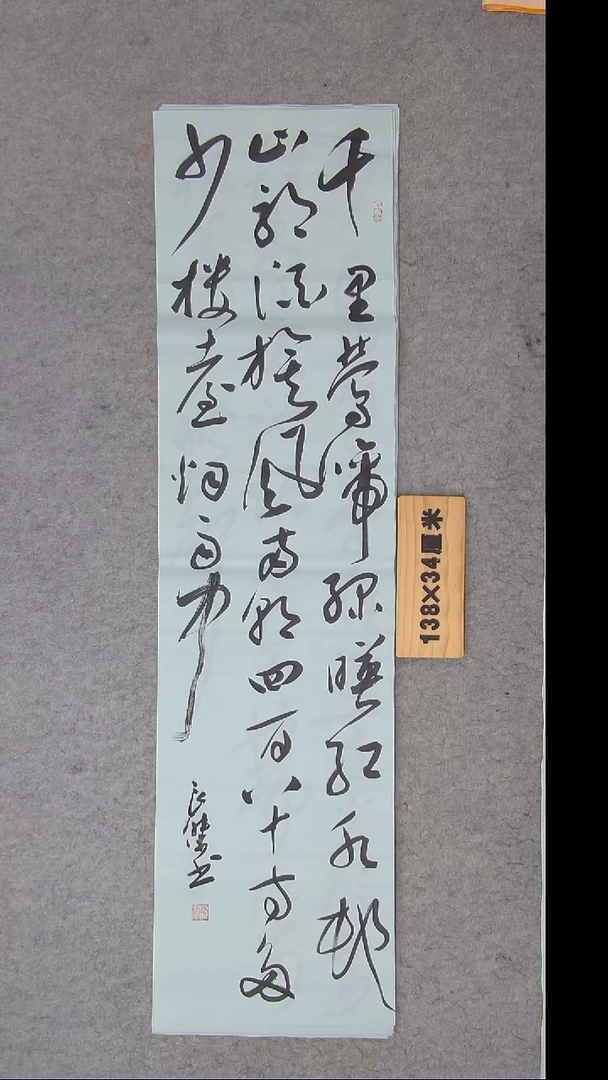 千里莺啼绿暎红水村
山郭酒旗风南朝四百八十寺多
少楼臺烟雨中
书
138×34厘米